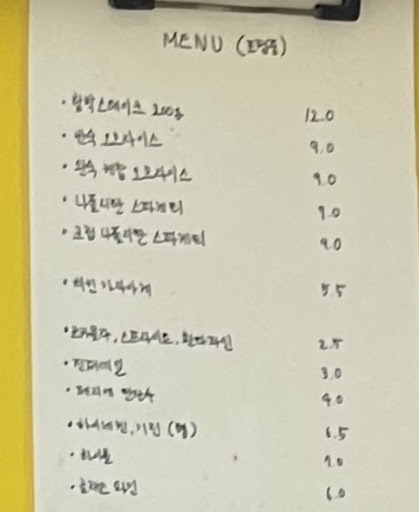 MENU (포장용)
· 함박스테이크 200g 12.0
· 반숙 오므라이스 9.0
· 완숙 오므라이스 9.0
· 나폴리탄 스파게티 9.0
· 크림 나폴리탄 스파게티 9.0
· 치킨 가라아게 5.5
· 코카콜라, 스프라이트, 환타파인 2.5
· 진저에일 3.0
· 페리에 탄산수 4.0
· 하이네켄, 기린 (병) 6.5
· 하이볼
· 와인 6.0